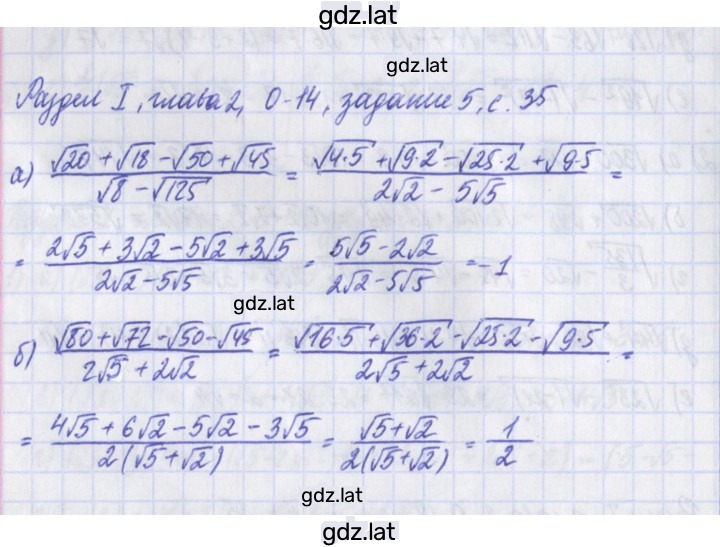 gdz.lat
gdz.lat
Раздел I, глава 2, О-14, задание 5, с. 35
gdz.lat
а) (√20 + √18 - √50 + √45)/(√8 - √125) = (√4·5 + √9·2 - √25·2 + √9·5)/(2√2 - 5√5) =
= (2√5 + 3√2 - 5√2 + 3√5)/(2√2 - 5√5) = (5√5 - 2√2)/(2√2 - 5√5) = -1
gdz.lat
б) (√80 + √72 - √50 - √45)/(2√5 + 2√2) = (√16·5 + √36·2 - √25·2 - √9·5)/(2√5 + 2√2) =
= (4√5 + 6√2 - 5√2 - 3√5)/(2(√5 + √2)) = (√5 + √2)/(2(√5 + √2)) = 1/2
gdz.lat
gdz.lat